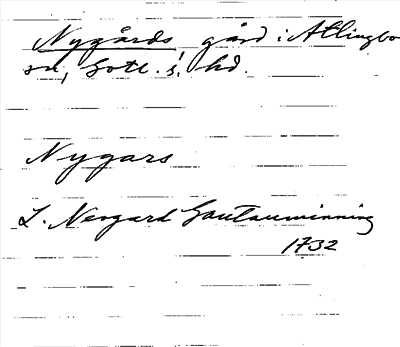 Nygårds gård i Atlingbo
sn, Gotl. s. hd.
Nygars
L. Neogard Gautauminning
1732